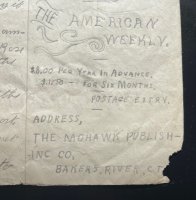 THE AMERICAN
WEEKLY.
PER YEAR IN ADVANCE,
FOR SIX MONTHS,
POSTAGE EXTRY.
ADDRESS,
THE MOHAWK PUBLISH-
ING CO,
BAKERS, RIVER, C.T.